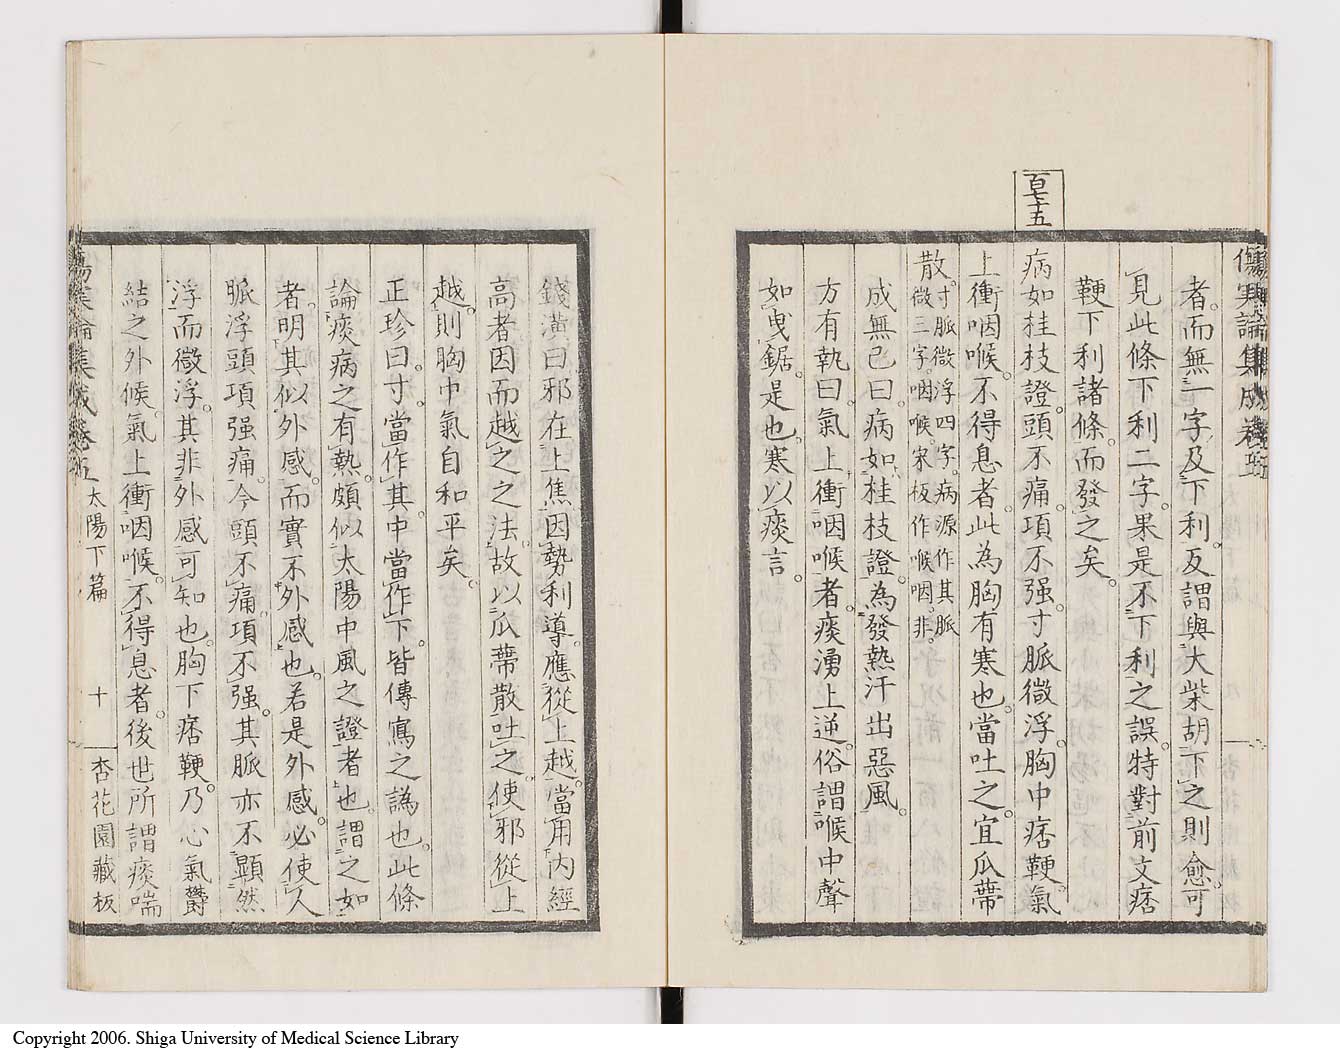 百七十五
傷寒論集成卷五
者。而無一字及下利。反謂與大柴胡下之則愈。可
見此條下利二字。果是不下利之誤。特對前文痞
鞕下利諸條。而發之矣。
病如桂枝證。頭不痛。項不强。寸脈微浮。胸中痞鞕。氣
上衝咽喉。不得息者。此為胸有寒也。當吐之。宜瓜蔕
散。寸脈微浮四字。病源作其脈
微三字。咽喉。宋板作喉咽。非。
成無己曰。病如桂枝證。為發熱汗出惡風。
方有執曰。氣上衝咽喉者。痰湧上逆。俗謂喉中聲
如曳鋸。是也。寒以痰言。
錢潢曰。邪在上焦。因勢利導。應從上越。當用内經
高者因而越之之法。故以瓜蔕散吐之。使邪從上
越。則胸中氣自和平矣。
正珍曰。寸。當作其。中。當作下。皆傳寫之譌也。此條
論痰病之有熱。頗似太陽中風之證者也。謂之如
者。明其似外感。而實不外感也。若是外感。必使人
脈浮頭項强痛。今頭不痛。項不强。其脈亦不顯然
浮而微浮。其非外感可知也。胸下痞鞕。乃心氣鬱
結之外候。氣上衝咽喉。不得息者。後世所謂痰喘
傷寒論集成卷五 太陽下篇 十 杏花園藏板
Copyright 2006. Shiga University of Medical Science Library